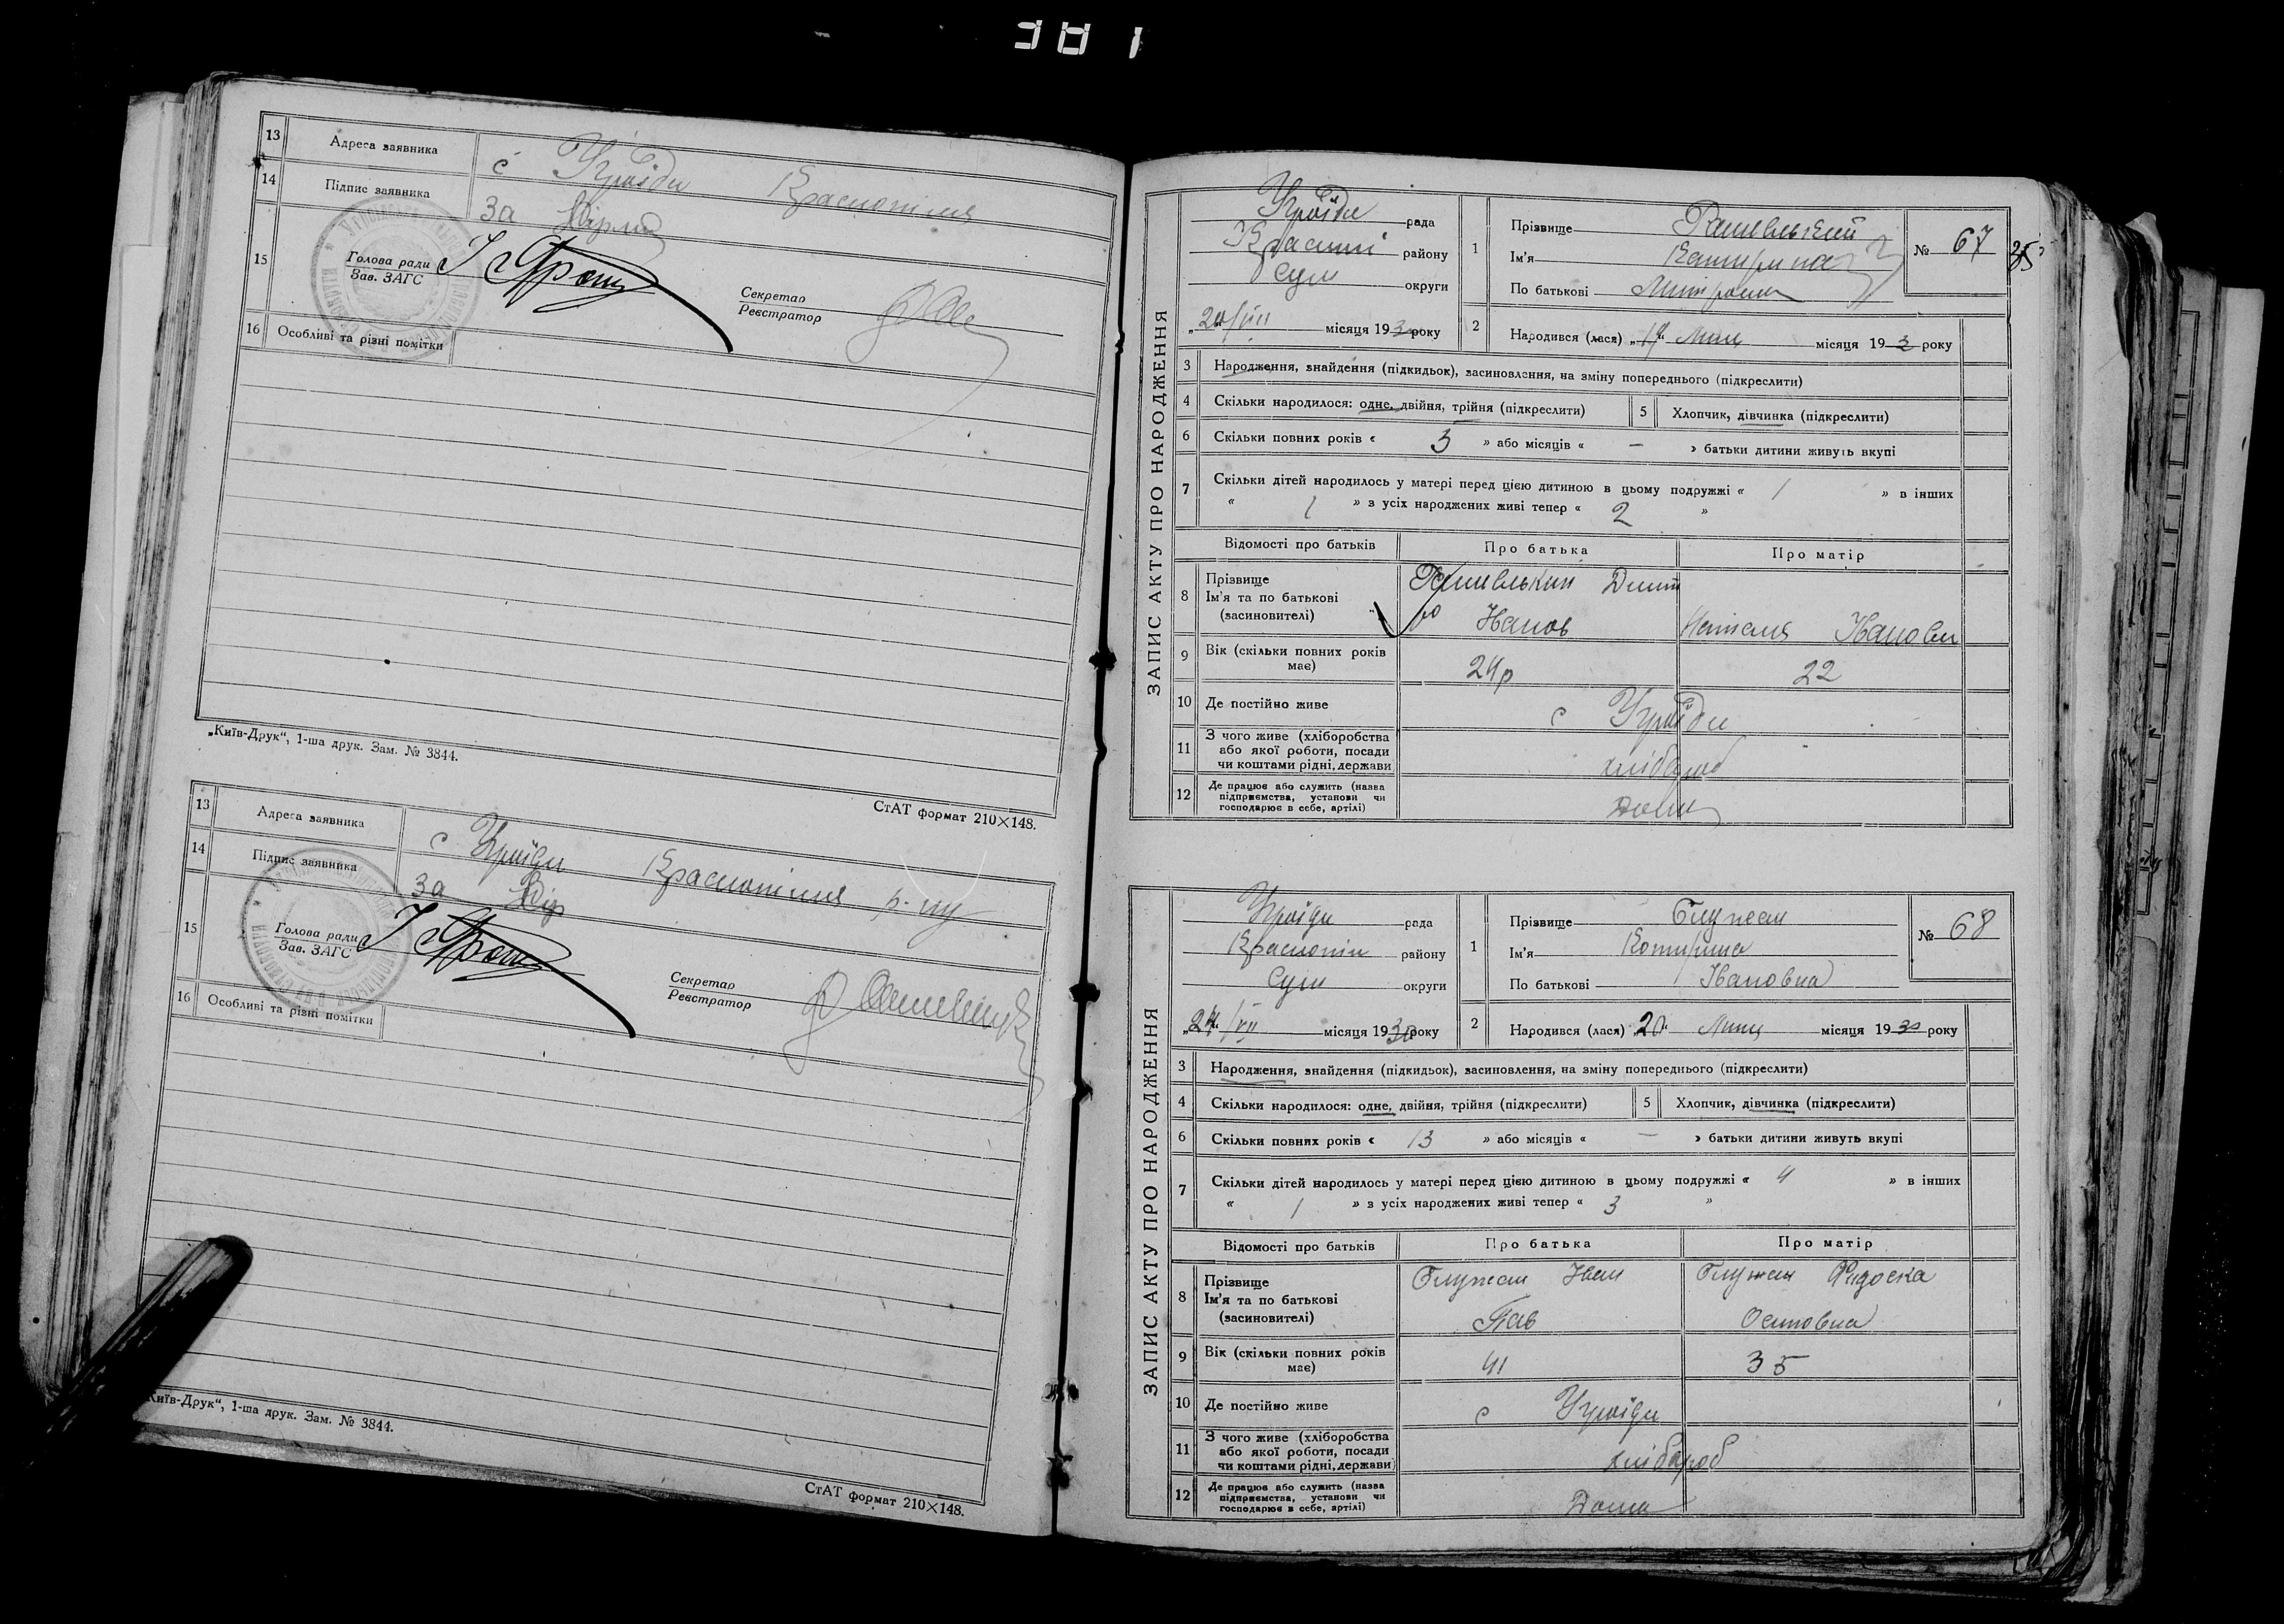 381
13 Адреса заявника с Угроїди Краснопілля
14 Підпис заявника За
15 Голова ради
Зав. ЗАГС
Секретар
Реєстратор
16 Особливі та різні помітки
„Київ-Друк“, 1-ша друк. Зам. № 3844.
СтАТ формат 210×148.
13 Адреса заявника с Угроїди Краснопілля р-ну
14 Підпис заявника За
15 Голова ради
Зав. ЗАГС
Секретар
Реєстратор
16 Особливі та різні помітки
Київ-Друк“, 1-ша друк. Зам. № 3844.
СтАТ формат 210×148.
ЗАПИС АКТУ ПРО НАРОДЖЕННЯ
Угроїди рада
району
Сум округи
місяця 193 року
1 Прізвище
Ім'я
По батькові
№ 67
2 Народився (лася) місяця 193 року
3 Народження, знайдення (підкидьок), засиновлення, на зміну попереднього (підкреслити)
4 Скільки народилося: одне, двійня, трійня (підкреслити) 5 Хлопчик, дівчинка (підкреслити)
6 Скільки повних років « » або місяців « — » батьки дитини живуть вкупі
7 Скільки дітей народилось у матері перед цією дитиною в цьому подружжі « 1 » в інших
« 1 » з усіх народжених живі тепер « 2 »
Відомості про батьків Про батька Про матір
8 Прізвище
Ім'я та по батькові
(засиновителі) Іванов
9 Вік (скільки повних років має) 24р 22
10 Де постійно живе с Угроїди
11 З чого живе (хліборобства або якої роботи, посади чи коштами рідні, держави хлібароб
12 Де працює або служить (назва підприємства, установи чи господарює в себе, артілі) Дома
ЗАПИС АКТУ ПРО НАРОДЖЕННЯ
Угроїди рада
Краснопіл району
Сум округи
„24“ VII місяця 1930 року
1 Прізвище
Ім'я Котирина
По батькові Івановна
№ 68
2 Народився (лася) „20“ Липц місяця 1930 року
3 Народження, знайдення (підкидьок), засиновлення, на зміну попереднього (підкреслити)
4 Скільки народилося: одне, двійня, трійня (підкреслити) 5 Хлопчик, дівчинка (підкреслити)
6 Скільки повних років « 13 » або місяців « — » батьки дитини живуть вкупі
7 Скільки дітей народилось у матері перед цією дитиною в цьому подружжі « 4 » в інших
« 1 » з усіх народжених живі тепер « 3 »
Відомості про батьків Про батька Про матір
8 Прізвище
Ім'я та по батькові
(засиновителі) Пав Осиповна
9 Вік (скільки повних років має) 41 35
10 Де постійно живе с Угроїди
11 З чого живе (хліборобства або якої роботи, посади чи коштами рідні, держави) хлібароб
12 Де працює або служить (назва підприємства, установи чи господарює в себе, артілі) Дома